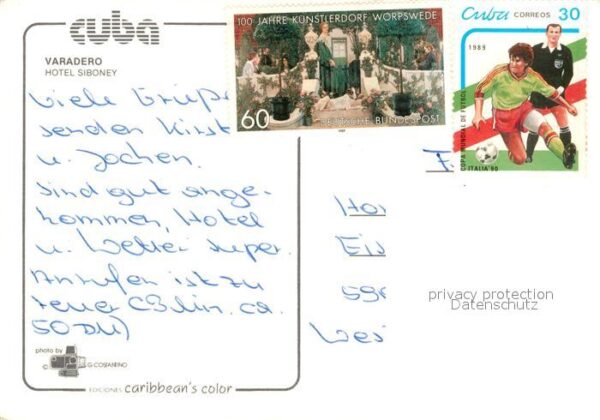 cuba
VARADERO
HOTEL SIBONEY
Viele Grüße
senden Kirst
u. Jochen.
Sind gut ange-
kommen, Hotel
u. Wetter super.
Anrufen ist zu
teuer (3 Min. ca.
50 DM)
photo by
© G. COSTANTINO
EDICIONES caribbean's color
100 JAHRE KÜNSTLERDORF WORPSWEDE
60
DEUTSCHE BUNDESPOST
1989
Cuba CORREOS 30
1989
COPA MUNDIAL DE FUTBOL
ITALIA '90
F
Hor
Eis
59
Wes
privacy protection
Datenschutz